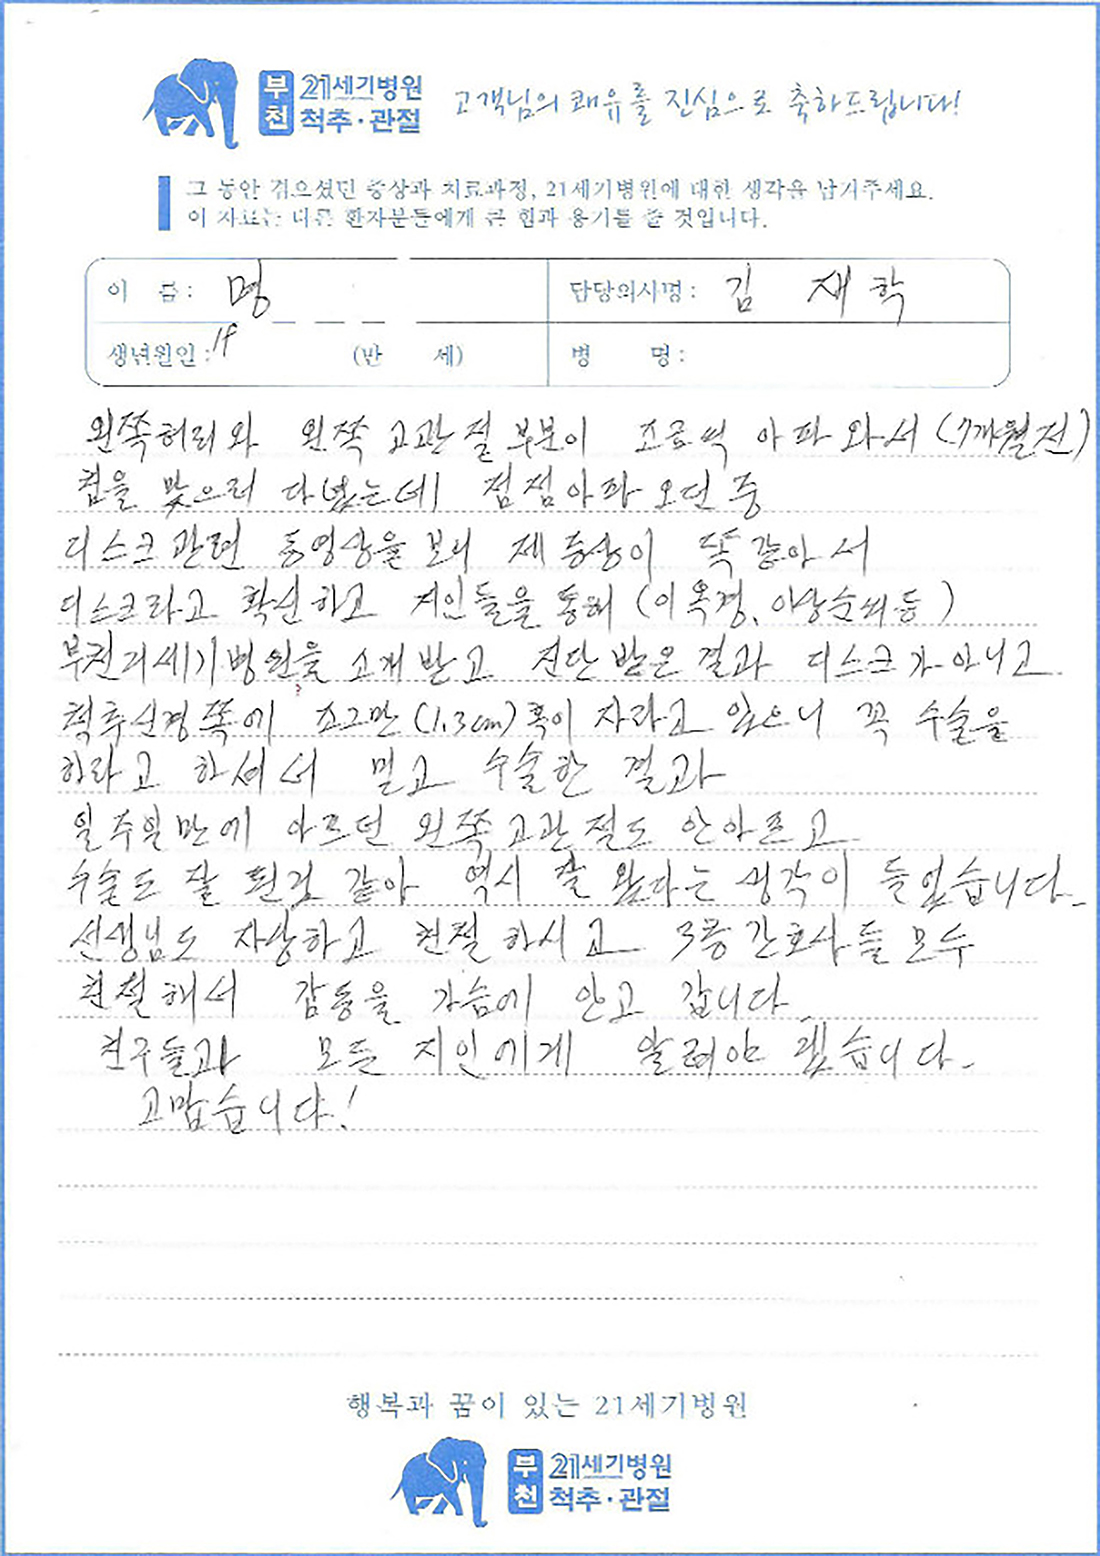 부천 21세기병원 척추·관절
고객님의 쾌유를 진심으로 축하드립니다!
그 동안 겪으셨던 증상과 치료과정, 21세기병원에 대한 생각을 남겨주세요.
이 자료는 다른 환자분들에게 큰 힘과 용기를 줄 것입니다.
이 름 : 명
담당의사명 : 김 재 학
생년월일 : 19 (만 세)
병 명 :
왼쪽허리와 왼쪽 고관절 부분이 조금씩 아파 와서 (7개월전)
침을 맞으러 다녔는데 점점아파 오던 중
디스크관련 동영상을 보니 제 증상이 똑 같아서
디스크라고 확신하고 지인들을 통해 (이옥경, 등)
부천21세기병원을 소개받고 진단 받은 결과 디스크가 아니고
척추신경쪽에 조그만 (1.3cm) 혹이 자라고 있으니 꼭 수술을
하라고 하셔서 믿고 수술한 결과
일주일만에 아프던 왼쪽고관절도 안아프고
수술도 잘 된것 같아 역시 잘 왔다는 생각이 들었습니다.
선생님도 자상하고 친절하시고 3층간호사들 모두
친절해서 감동을 가슴에 안고 갑니다.
친구들과 모든 지인에게 알려야 겠습니다.
고맙습니다!
행복과 꿈이 있는 21세기병원
부천 21세기병원 척추·관절